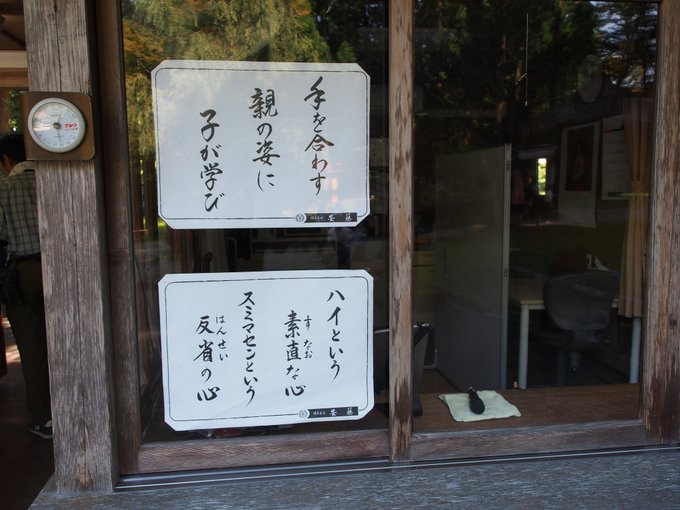 手を合わす
親の姿に
子が学び
ハイという
素直な心
すなお
スミマセンという
反省の心
はんせい